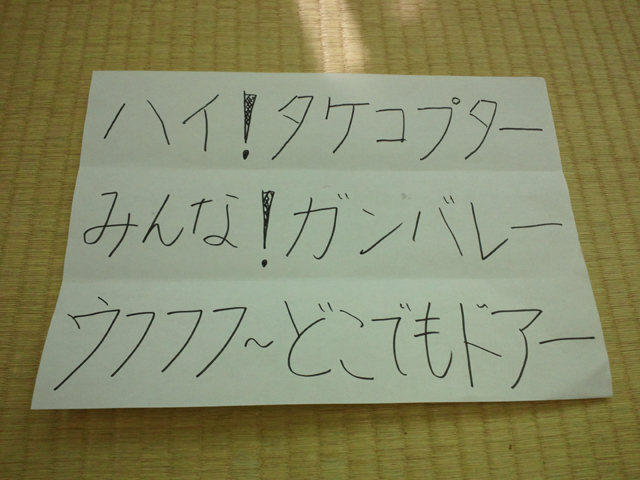 ハイ!タケコプター
みんな!ガンバレー
ウフフフ~どこでもドアー